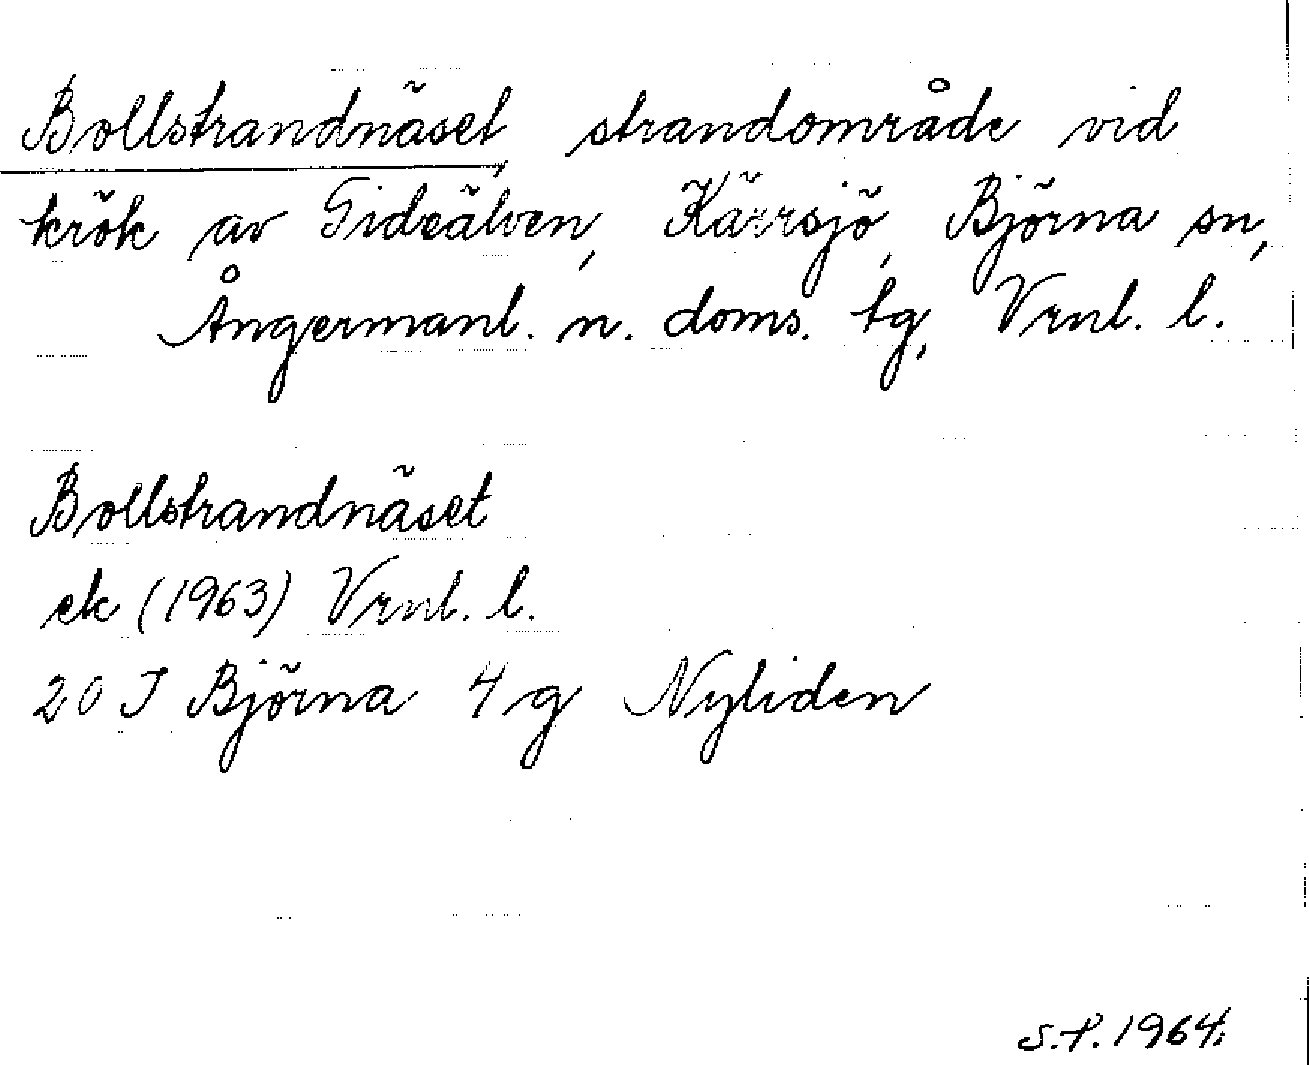 Bollstrandnäset, strandområde vid
krök av Gideälven, Kärrsjö, Björna sn,
Ångermanl. n. doms. tg, Vrnl. l.
Bollstrandnäset
ek (1963) Vrnl. l.
20 J Björna 4 g Nyliden
S.P. 1964.